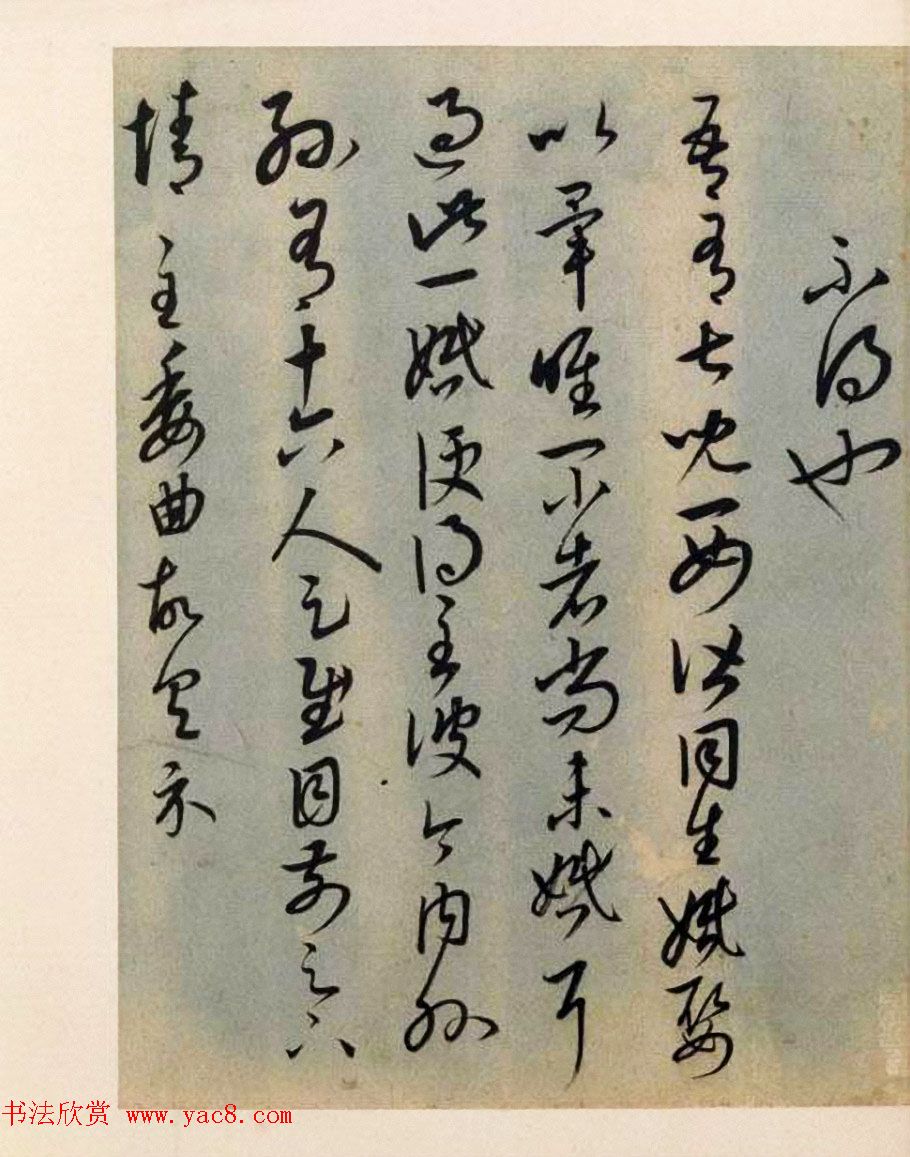 不得也
吾有七兒一女皆同生婚娶
以畢唯一小者尚未婚耳
過此一婚便得至彼今內外
孫有十六人足慰目前足下
情至委曲故具示
书法欣赏 www.yac8.com